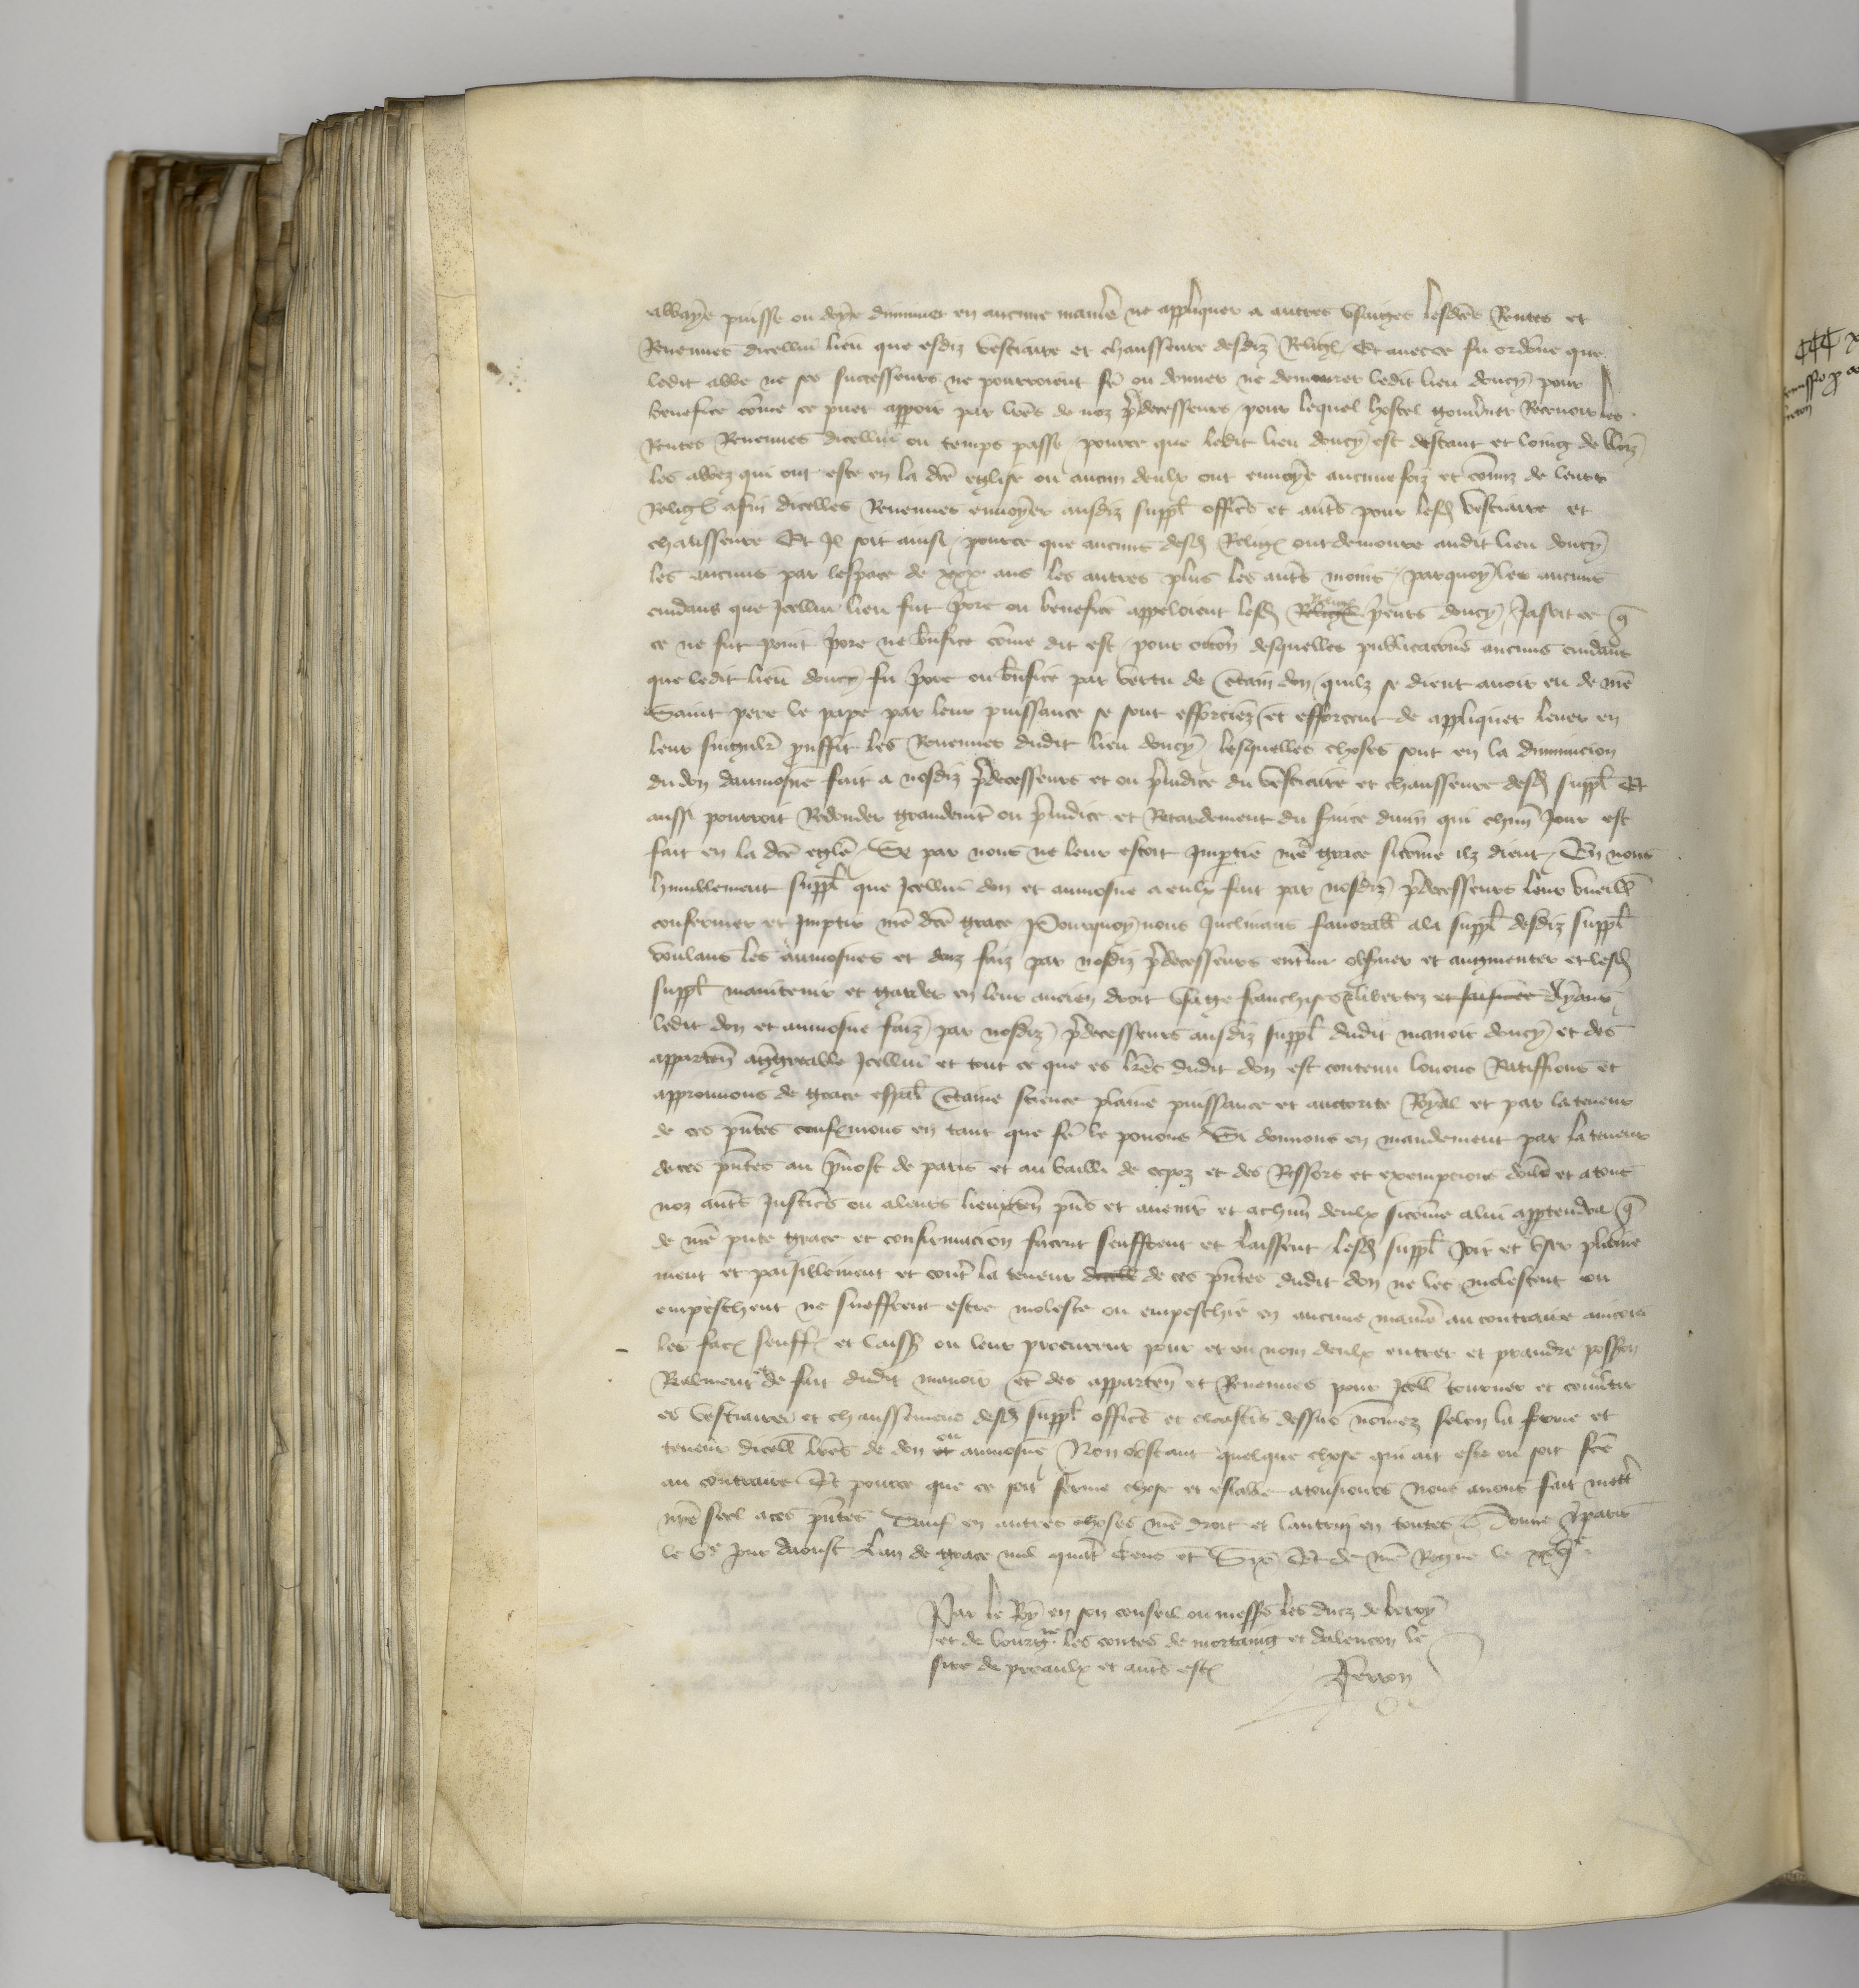 abbaye puisse ou doye diminuer en aucune maniē ne appliquer a autres usaiges lesdc̄es Rentes et
Revenues dicellui lieu que esdiz vestiaire et chausseure desdiz Reliḡ Et avecce fu ordōne que
ledit abbe ne ses successeurs ne pourroient fē ou donner ne demourer ledit lieu doucy pour
benefice cōme ce puet apparoir par lrēs de noz p̄decesseurs pour lequel hostel gouv̄ner Recevoir les
Rentes Revenues dicellui ou temps passe pource que ledit lieu doucy est distant et loing de
les abbez qui ont este en la dcē eglise ou aucun deulx ont envoye aucunefoiz et cōmiz de leurs
Reliḡ afin dicelles Revenues envoyer ausdiz suppl̄ offic̄s et aut̄s pour lesd̄ vestiaire et
chausseure Et Il soit ainsi pource que aucuns desd̄ Reliḡ ont demoure audit lieu doucy
les aucuns par lespace de xxx ans les autres plus les aut̄s moins parquoy les aucuns
cuidans que Icellui lieu fut p̄ore ou benefice appeloient lesd̄ Reliḡ p̄eurs doucy Jasoit ce q̄
ce ne fut point p̄ore ne bn̄fice cōme dit est pour occōn desquelles publicacōns aucuns cuidans
que ledit lieu doucy fu p̄ore ou bn̄fice par vertu de c̄tain don quilz se dient avoir eu de nr̄e
Saint pere le pape par leur puissance se sont efforciez et efforcent de appliquer lever en
leur singul̄r prouffit les Revenues dudit lieu doucy lesquelles choses sont en la diminucion
du don daumosne fait a nosdiz p̄decesseurs et ou p̄iudice du vestiaire et chausseure desd̄ suppl̄ Et
aussi pourroit Redonder grandemt̄ ou p̄iudice et Retardement du s̄vice divin qui chūn Jour est
fait en la dcē eglē Se par nous ne leur estoit Imp̄tie nr̄e grace sicōme ilz dient En nous
humblement suppl̄ que Icellui don et aumosne a eulx fait par nosdiz p̄decesseurs leur vueill̄
confermer et Imp̄tir nr̄e dcē grace Pourquoy nous Inclinans favorabl̄ ala suppl̄ desdiz suppl̄
voulans les aumosnes et dons faiz par nosdiz p̄decesseurs entenir observer et augmenter et lesd̄
suppl̄ maintenir et garder en leur ancien droit usage franchises libertez et saisines Ayans
ledit don et aumosne faiz par nosdiz p̄decesseurs ausdiz suppl̄ dudit manoir doucy et des
apparten̄ aggreable Icellui et tout ce que es lrēs dudit don est contenu louons Ratiffions et
approuvons de grace esp̄al̄ c̄taine science plaine puissance et auctorite Royal et par la teneur
de ces pn̄tes conf̄mons en tant que fē le povons Si donnons en mandement par la teneur
de ces pn̄tes au p̄vost de paris et au bailli de cepoy et des Ressors et exempcions dicell̄ et atous
noz aut̄s Justic̄s ou aleurs lieuxten̄ pn̄s et avenir et achūn deulx sicōme alui app̄tendra q̄
de nr̄e pn̄te grace et confirmacion facent seuffrent et laissent lesd̄ suppl̄ Joir et user plaine
ment et paisiblement et cont̄ la teneur de ces pn̄tes dudit don ne les molestent ou
empeschent ne sueffrent estre moleste ou empeschie en aucune maniē au contraire aincois
les fac̄ seuffr̄ et laiss̄ ou leur procureur pour et ou nom deulx entrer et prandre possion
Realment et de fait dudit manoir et des apparten̄ et Revenues pour Icell̄ tourner et cōnv̄tir
es vestiaires et chaussemens desd̄ suppl̄ offic̄s et cloistr̄s dessus nōmez selon la forme et
teneur dicell̄ lrēs de don ou aumosne Non obstant quelque chose qui ait este ou soit fcē
au contraire Et pource que ce soit ferme chose et estable atousiours Nous avons fait mett̄
nr̄e seel aces pn̄tes Sauf en autres choses nr̄e droit et lautruy en toutes Donne a paris
le Ve Jour daoust Lan de grace mil quat̄ cens et Six Et de nr̄e Regne le xxvje
Par le Roy en son conseil ou messrs les ducz de berry
et de bourgne les contes de mortaing et dalencon le
sire de preaulx et aut̄s est̄
Ferron